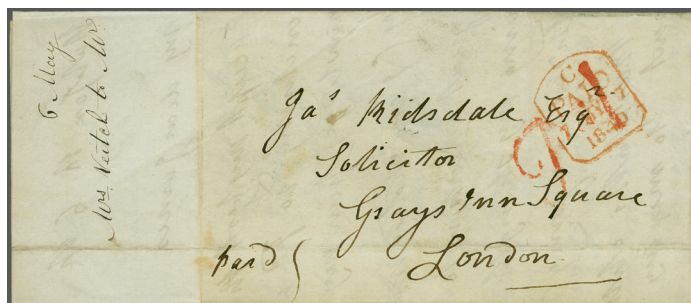 6 May
Mrs. Veitch to Mr
Jas Ridsdale Esqr
Solicitor
Grays Inn Square
London
paid
C
PAID
7 MY 7
1840